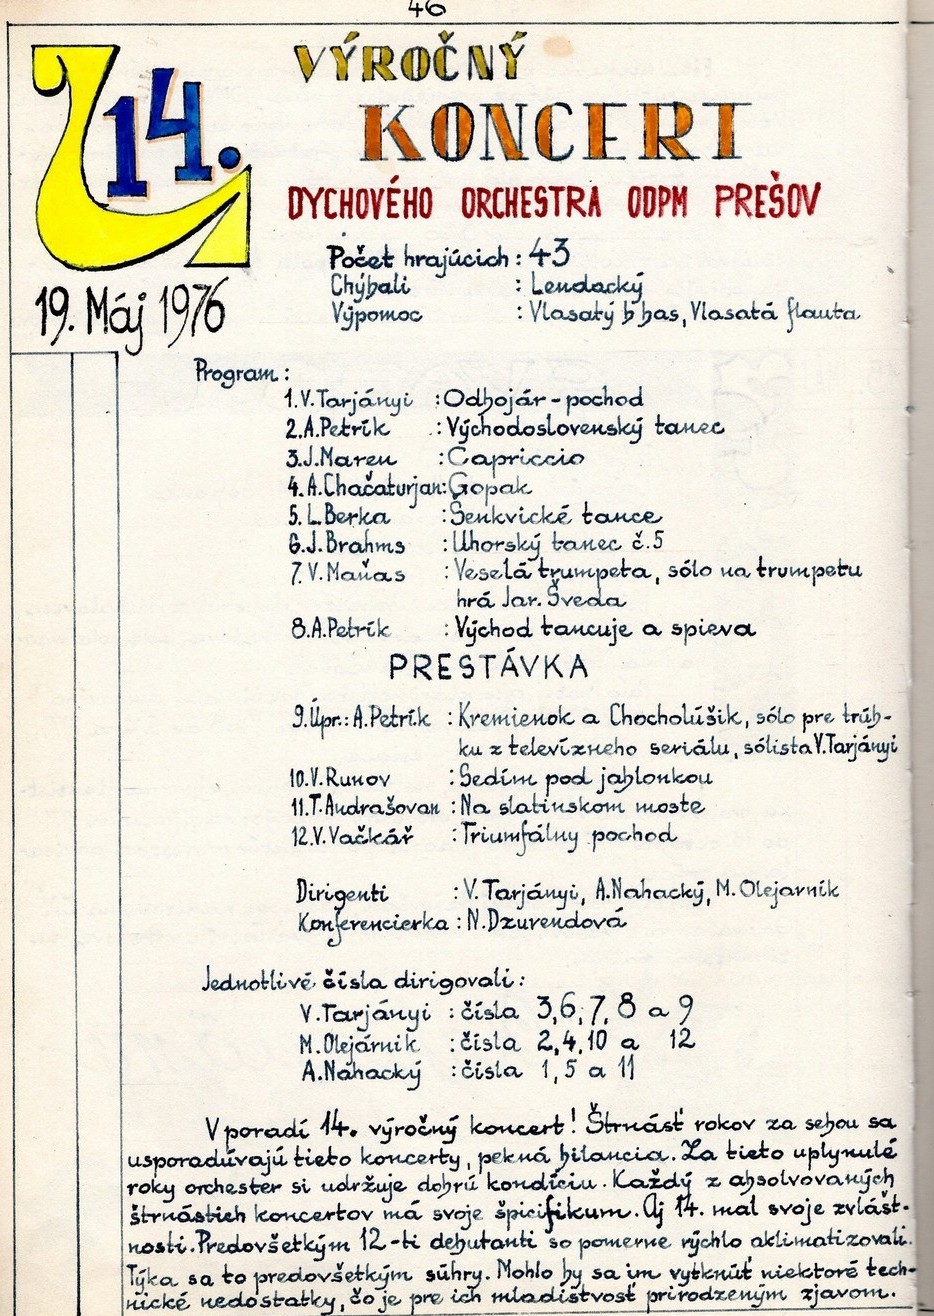 46
14.
VÝROČNÝ
KONCERT
DYCHOVÉHO ORCHESTRA ODPM PREŠOV
19. Máj 1976
Počet hrajúcich : 43
Chýbali : Lendacký
Výpomoc : Vlasatý b bas, Vlasatá flauta
Program :
1. V. Tarjányi : Odhojár - pochod
2. A. Petrík : Východoslovenský tanec
3. J. Maren : Capriccio
4. A. Chačaturjan : Gopak
5. L. Berka : Šenkvické tance
6. J. Brahms : Uhorský tanec č. 5
7. V. Maňas : Veselá trumpeta, sólo na trumpetu
hrá Jar. Šveda
8. A. Petrík : Východ tancuje a spieva
PRESTÁVKA
9. Úpr.: A. Petrík : Kremienok a Chocholúšik, sólo pre trúb-
ku z televízneho seriálu, sólista V. Tarjányi
10. V. Runov : Sedím pod jablonkou
11. T. Andrašovan : Na slatinskom moste
12. V. Vačkář : Triumfálny pochod
Dirigenti : V. Tarjányi, A. Nahacký, M. Olejarník
Konferencierka : N. Dzurendová
Jednotlivé čísla dirigovali :
V. Tarjányi : čísla 3, 6, 7, 8 a 9
M. Olejárnik : čísla 2, 4, 10 a 12
A. Náhacký : čísla 1, 5 a 11
V poradí 14. výročný koncert ! Štrnásť rokov za sebou sa
usporadúvajú tieto koncerty, pekná bilancia. Za tieto uplynulé
roky orchester si udržuje dobrú kondíciu. Každý z absolvovaných
štrnástich koncertov má svoje špicifikum. Aj 14. mal svoje zvlášt-
nosti. Predovšetkým 12-ti debutanti so pomerne rýchlo aklimatizovali.
Týka sa to predovšetkým súhry. Mohlo by sa im vytknúť niektoré tech-
nické nedostatky, čo je pre ich mladistvosť prirodzeným zjavom.